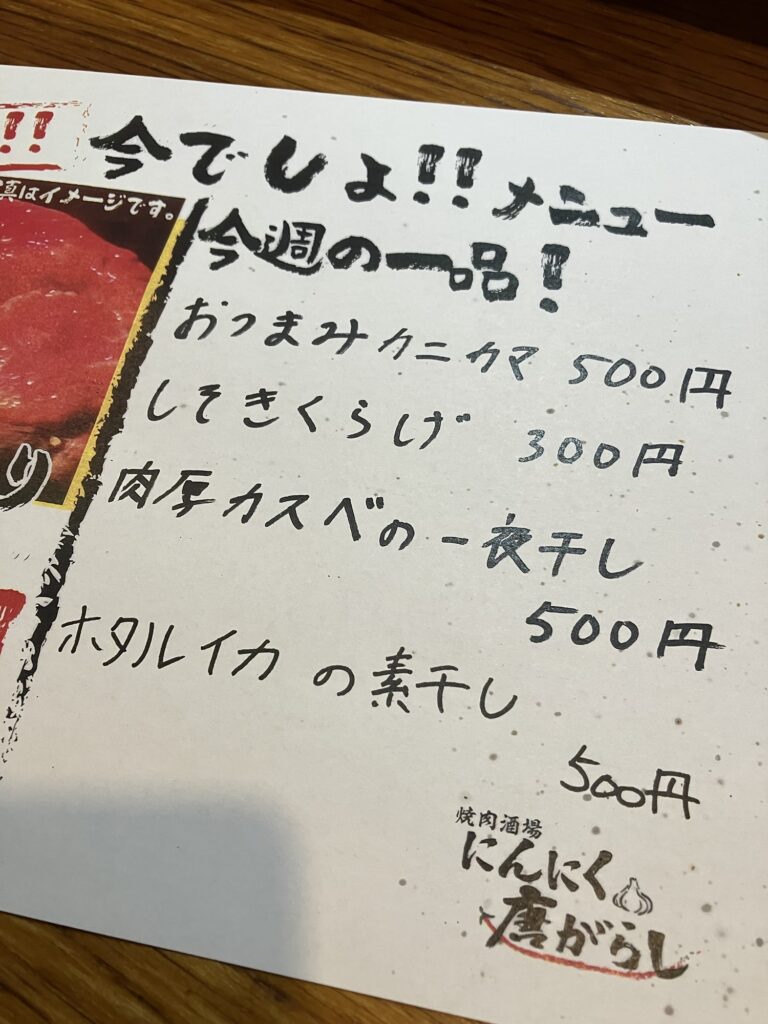 !!
今でしょ!!メニュー
真はイメージです。
今週の一品!
おつまみクニカマ 500円
しそきくらげ 300円
肉厚カスベの一夜干し
500円
り
ホタルイカの素干し
500円
焼肉酒場
にんにく
唐がらし